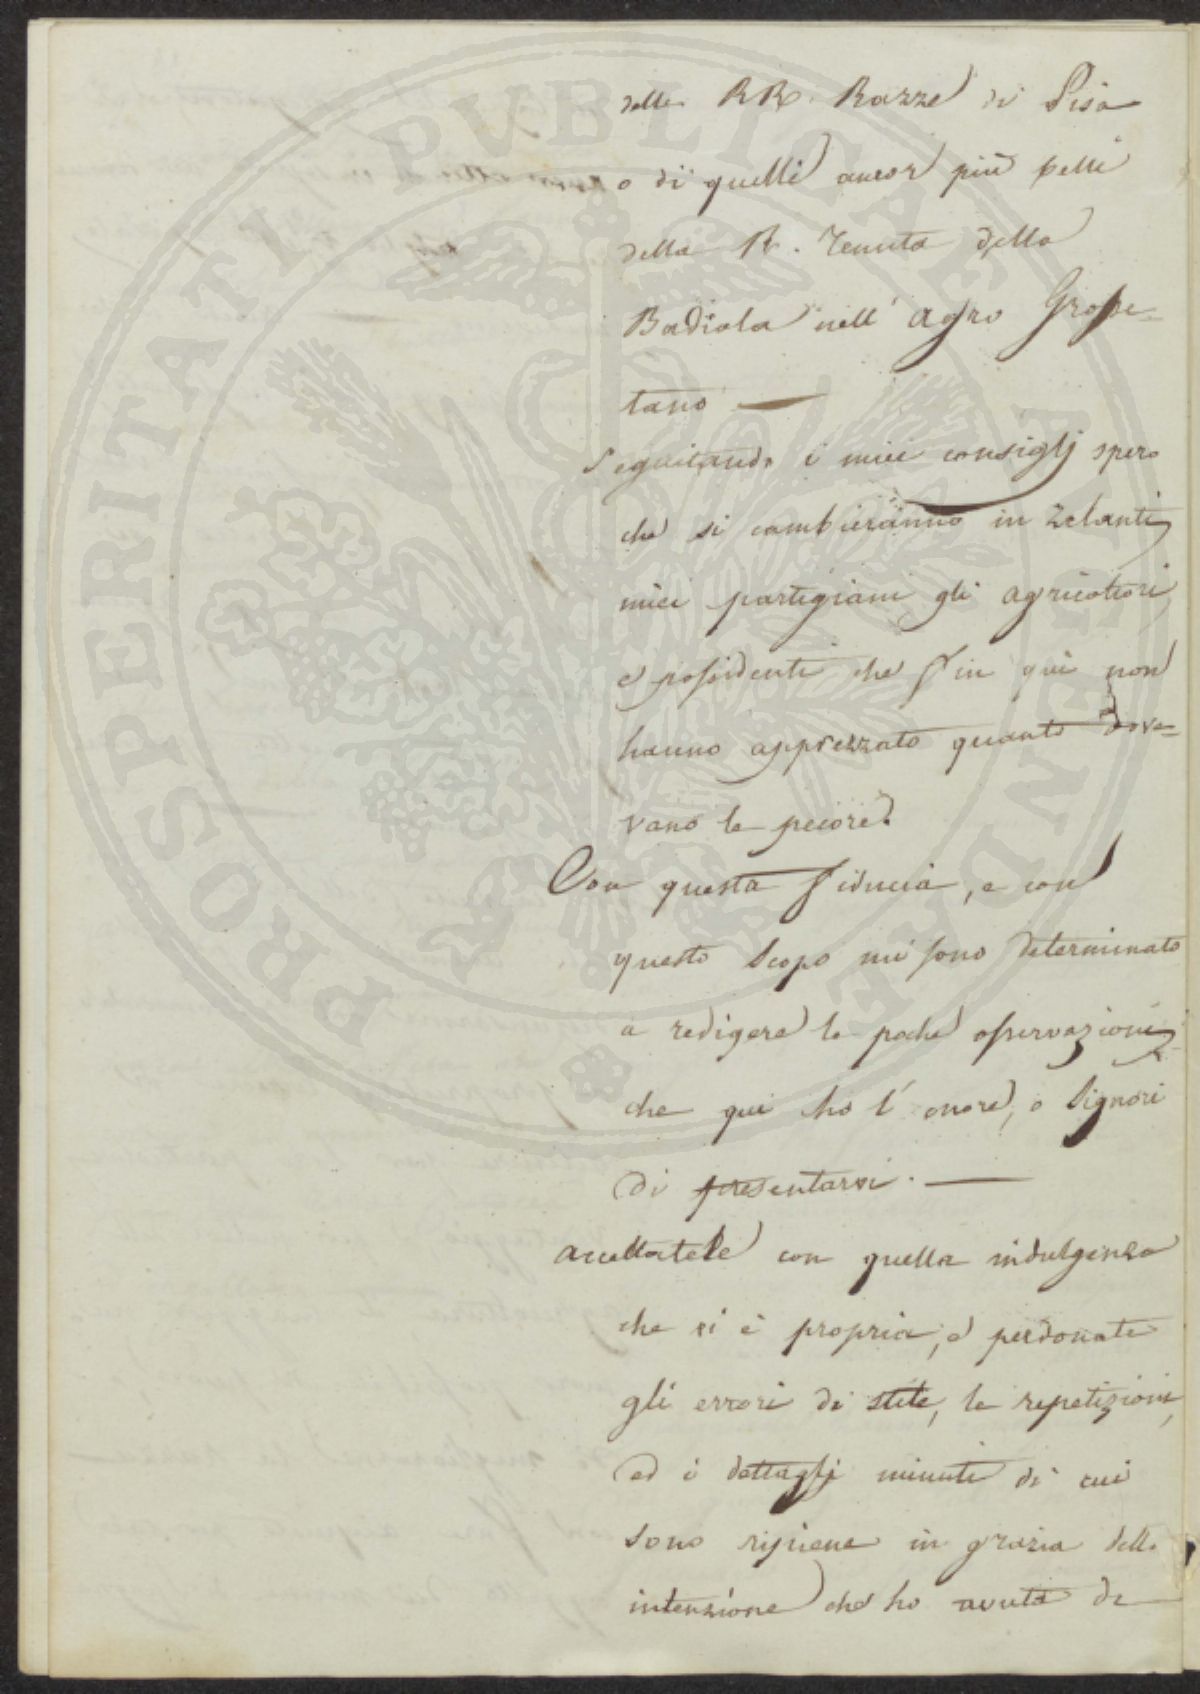 delle RR. Razze di Pisa
o di quelli ancor più belli
della R. Tenuta della
Badiola nell' agro Grosse=
tano —
Seguitando i miei consiglj spero
che si cambieranno in zelanti
miei partigiani gli agricoltori,
e possidenti che fin quì non
hanno apprezzato quanto dove=
vano le pecore.
Con questa fiducia, e con
questo scopo mi sono determinato
a redigere le poche osservazioni
che qui ho l'onore, o Signori
di presentarvi. —
accettatele con quella indulgenza
che vi è propria, e perdonate
gli errori di stile, le repetizioni,
ed i dettaglj minuti di cui
sono ripiene in grazia della
intenzione che ho avuta di
PROSPERITATI PUBLICAE AUGENDAE